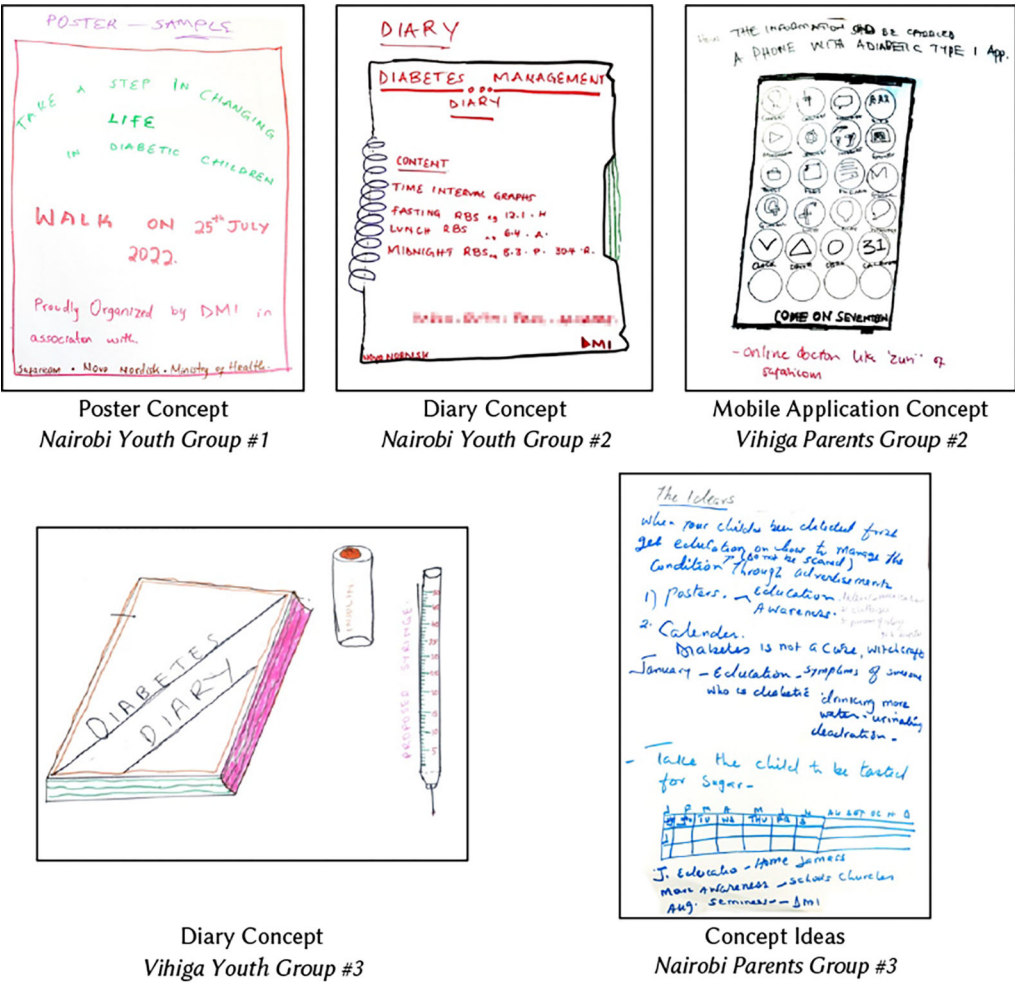 POSTER — SAMPLE
TAKE A STEP IN CHANGING
LIFE
IN DIABETIC CHILDREN
WALK ON 25th JULY
2022.
Proudly Organized by DMI in
association with.
Safaricom • Novo Nordisk • Ministry of Health.
Poster Concept
Nairobi Youth Group #1
DIARY
DIABETES MANAGEMENT
DIARY
CONTENT
TIME INTERVAL GRAPHS
FASTING RBS 12.1 . H
LUNCH RBS 6.4 . A.
MIDNIGHT RBS 8.3 . P. 304 . R.
DMI
NOVO NORDISK
Diary Concept
Nairobi Youth Group #2
THE INFORMATION BE
A PHONE WITH A DIABETIC TYPE 1 App.
31
COME ON SEVENTEEN
- online doctor like 'zuri' of
safaricom
Mobile Application Concept
Vihiga Parents Group #2
DIABETES
DIARY
INSULIN
PROPOSED SYRINGE
Diary Concept
Vihiga Youth Group #3
The Ideas
When your child been detected first
get education on how to manage the
(do not be scared)
Condition Through advertisements
1) Posters. Education
Awareness.
2. Calender.
Diabetes is not a Curse, witchcraft
January - Education - Symptoms of someone
who is diabetic drinking more
water - urinating
- Take the child to be tasted
for Sugar -
J. Educatio - Home
Awareness - Schools Churches
Aug. Seminers - DMI
Concept Ideas
Nairobi Parents Group #3